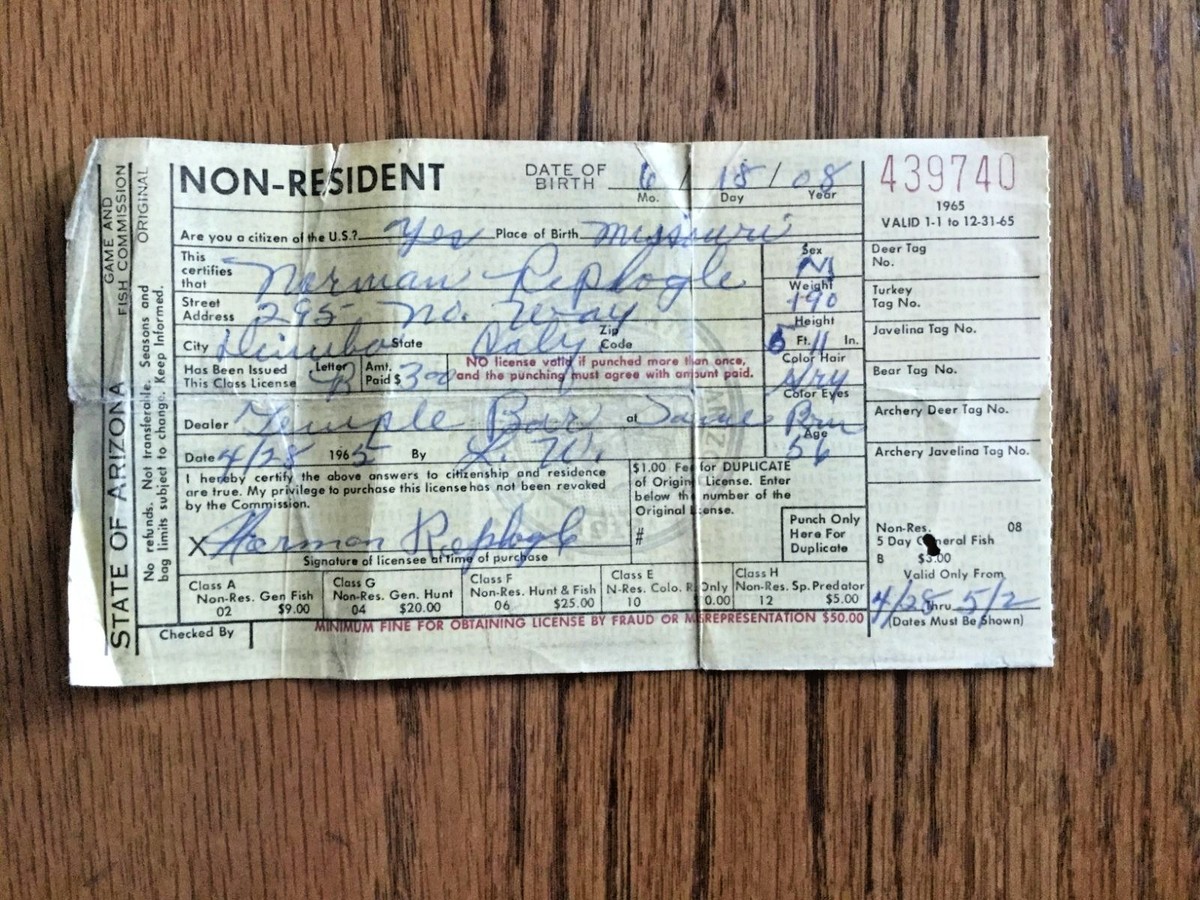 STATE OF ARIZONA
GAME AND
FISH COMMISSION
ORIGINAL
No refunds. Not transferable. Seasons and
bag limits subject to change. Keep Informed.
NON-RESIDENT
DATE OF
BIRTH 6 / 18 / 08
Mo. Day Year
Are you a citizen of the U.S.? Yes Place of Birth Missouri
This
certifies
that Norman Replogle
Street
Address 295 No. Way
City State Calif Zip
Code
Has Been Issued
This Class License Letter B Amt.
Paid $ 3.00
NO license valid if punched more than once,
and the punching must agree with amount paid.
Dealer Temple Bar at Same
Date 4/28 1965 By L. W.
Sex
M
Weight
190
Height
5 Ft. 11 In.
Color Hair
Gry
Color Eyes
Brn
Age
56
I hereby certify the above answers to citizenship and residence
are true. My privilege to purchase this license has not been revoked
by the Commission.
X Norman Replogle
Signature of licensee at time of purchase
$1.00 Fee for DUPLICATE
of Original License. Enter
below the number of the
Original License.
#
Punch Only
Here For
Duplicate
Class A
Non-Res. Gen Fish
02 $9.00
Class G
Non-Res. Gen. Hunt
04 $20.00
Class F
Non-Res. Hunt & Fish
06 $25.00
Class E
N-Res. Colo. R. Only
10 0.00
Class H
Non-Res. Sp. Predator
12 $5.00
Checked By
MINIMUM FINE FOR OBTAINING LICENSE BY FRAUD OR MISREPRESENTATION $50.00
439740
1965
VALID 1-1 to 12-31-65
Deer Tag
No.
Turkey
Tag No.
Javelina Tag No.
Bear Tag No.
Archery Deer Tag No.
Archery Javelina Tag No.
Non-Res. 08
5 Day General Fish
B $3.00
Valid Only From
4/28 Thru 5/2
(Dates Must Be Shown)